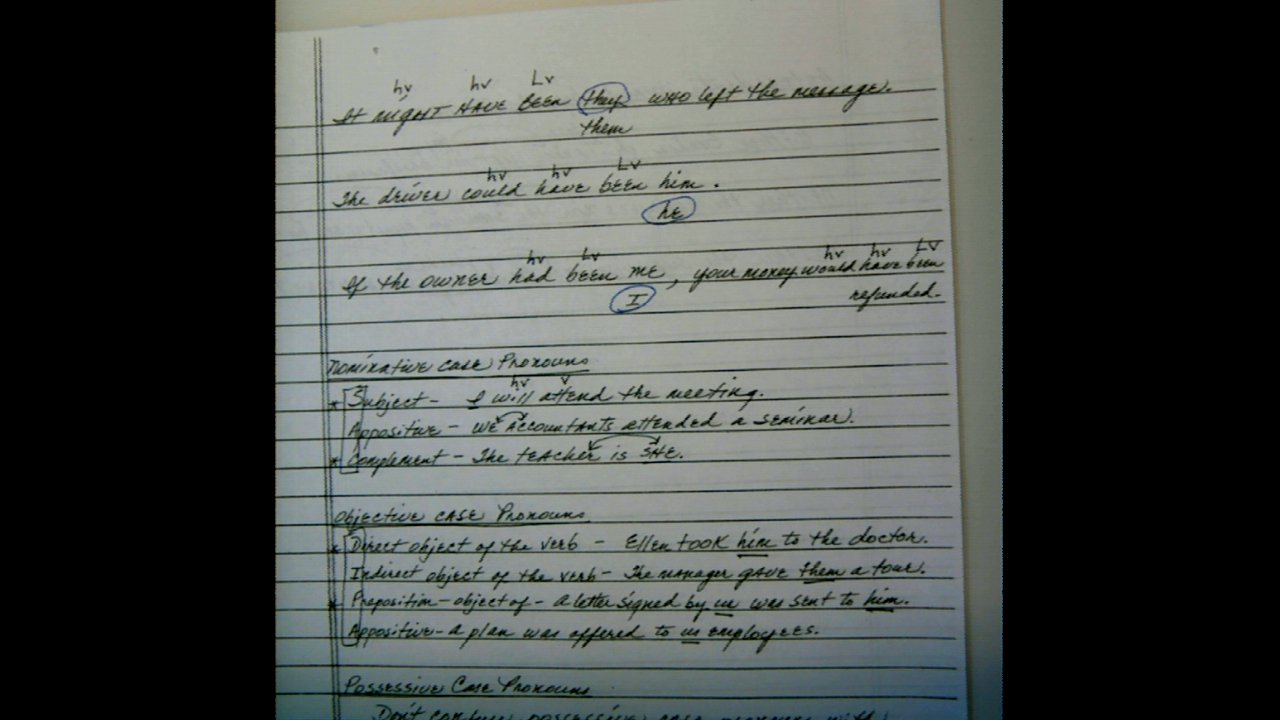 hv hv Lv
It might have been they who left the message.
them
hv hv Lv
The driver could have been him.
he
hv Lv hv hv LV
If the owner had been me, your money would have been
I refunded.
Nominative Case Pronouns
hv v
* Subject - I will attend the meeting.
Appositive - We accountants attended a seminar.
* Complement - The teacher is she.
Objective Case Pronouns
* Direct object of the verb - Ellen took him to the doctor.
Indirect object of the verb - The manager gave them a tour.
* Preposition - object of - a letter signed by us was sent to him.
Appositive - a plan was offered to us employees.
Possessive Case Pronouns
Don't confuse possessive case pronouns with